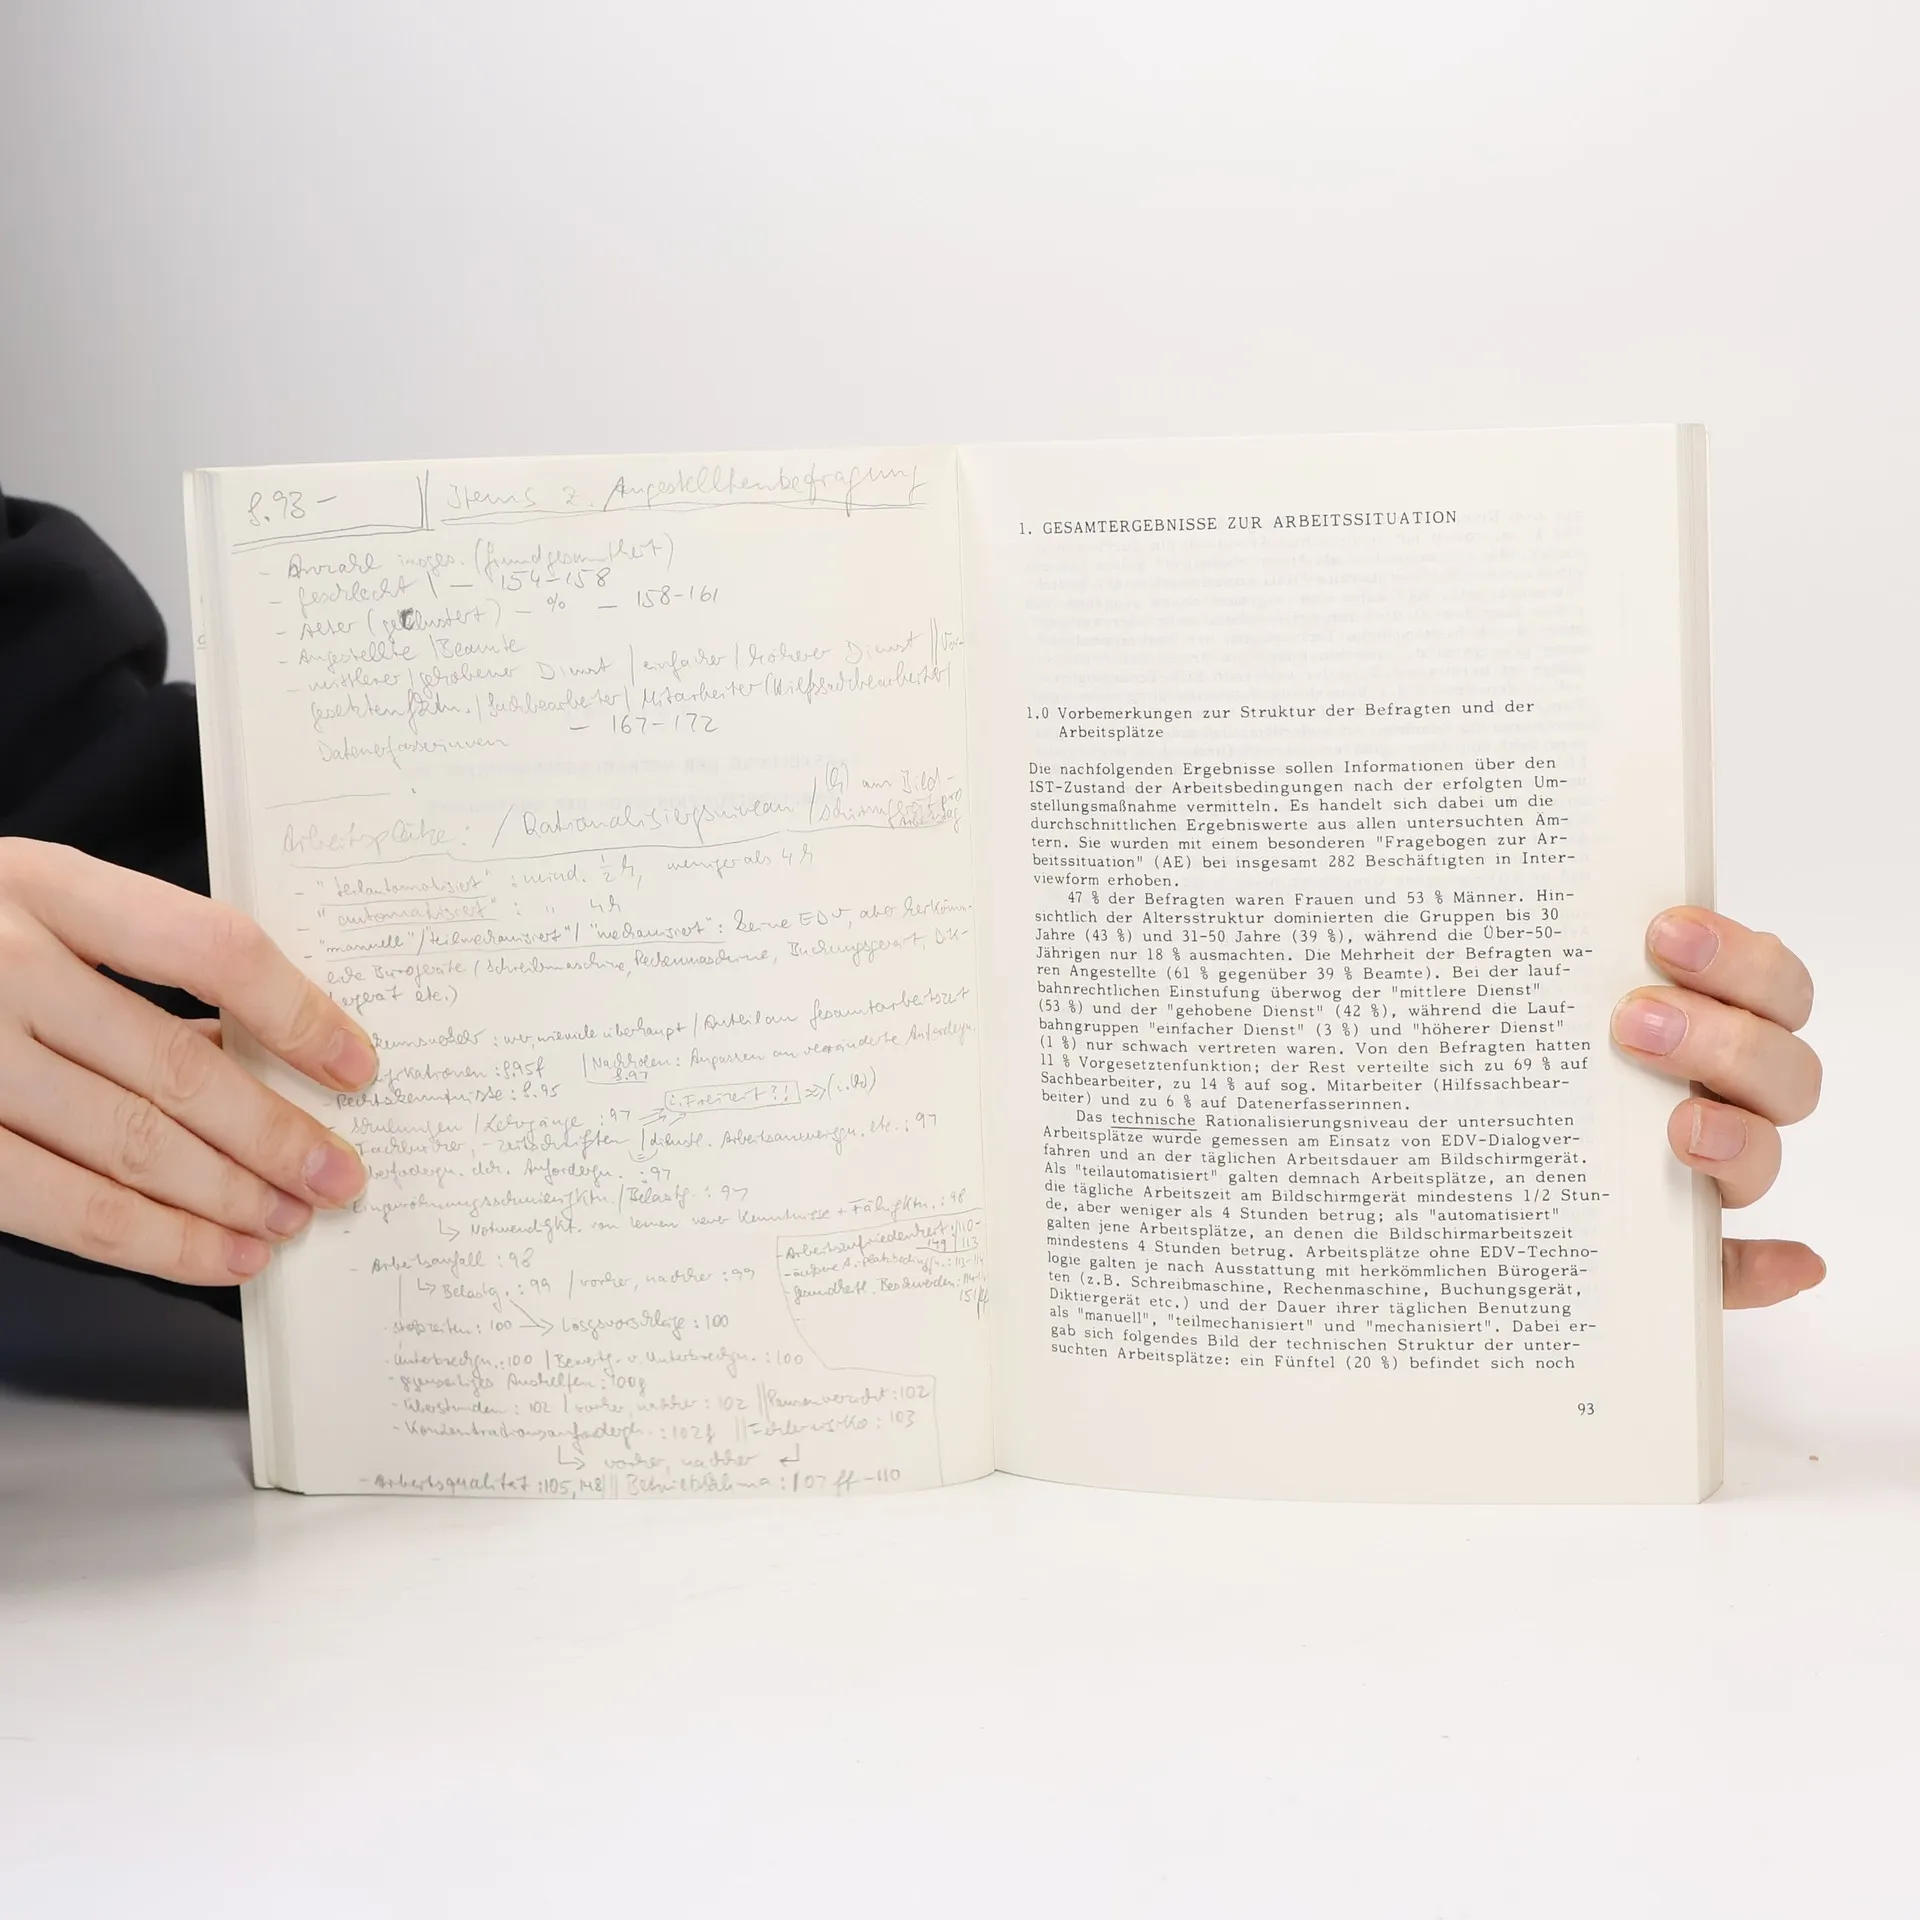 S. 93 –
Items z. Angestelltenbefragung
- Anzahl insges. (Grundgesamtheit)
- Geschlecht | – 154-158
- Alter (geclustert) – % – 158-161
- Angestellte / Beamte
- mittlerer / gehobener Dienst / einfacher / höherer Dienst || Vor-
gesetztenfktn. / Sachbearbeiter / Mitarbeiter (Hilfssachbearbeiter)
Datenerfasserinnen – 167-172
Arbeitsplätze: / Rationalisiergsniveau / (h) am Bild-
schirmgerät pro
- "teilautomatisiert" : mind. ½ h, weniger als 4 h
- "automatisiert" : " 4 h
- "manuell"/"teilmechanisiert"/"mechanisiert": keine EDV, aber herkömm-
Bürogeräte (Schreibmaschine, Rechenmaschine, Buchungsgerät, Dik-
etc.)
: wer, wieviele überhaupt / Anteil an Gesamtarbeitszeit
: S.95f | Nachholen: Anpassen an veränderte Anfordergn.
S.97
- Rechtskenntnisse : S.95
- Schulungen / Lehrgänge : 97 Freizeit?!
Fachbücher, -zeitschriften / dienstl. Arbeitsanweisgn. etc. : 97
Anfordergn. : 97
Eingewöhnungsschwierigktn. / Belastg. : 97
↳ Notwendigkt. von lernen neuer Kenntnisse + Fähigktn. : 98
- Arbeitsanfall : 98
↳ Belastg. : 99 / vorher, nachher : 99
- Stoßzeiten : 100 → Lösgsvorschläge : 100
- Unterbrechgn. : 100 / Bewertg. v. Unterbrechgn. : 100
- gegenseitiges Aushelfen : 100f
- Überstunden : 102 / vorher, nachher : 102 || Pausenverzicht : 102
- Konzentrationsanfordergn. : 102f || Fehlerrisiko : 103
↳ vorher, nachher ↲
- Arbeitsqualität : 105, 148 || Betriebsklima : 107 ff – 110
- Arbeitszufriedenheit : 110-
149 | 113
- äußere A.
- gesundheitl. Beschwerden :
151 ff
1. GESAMTERGEBNISSE ZUR ARBEITSSITUATION
1.0 Vorbemerkungen zur Struktur der Befragten und der
Arbeitsplätze
Die nachfolgenden Ergebnisse sollen Informationen über den
IST-Zustand der Arbeitsbedingungen nach der erfolgten Um-
stellungsmaßnahme vermitteln. Es handelt sich dabei um die
durchschnittlichen Ergebniswerte aus allen untersuchten Äm-
tern. Sie wurden mit einem besonderen "Fragebogen zur Ar-
beitssituation" (AE) bei insgesamt 282 Beschäftigten in Inter-
viewform erhoben.
47 % der Befragten waren Frauen und 53 % Männer. Hin-
sichtlich der Altersstruktur dominierten die Gruppen bis 30
Jahre (43 %) und 31-50 Jahre (39 %), während die Über-50-
Jährigen nur 18 % ausmachten. Die Mehrheit der Befragten wa-
ren Angestellte (61 % gegenüber 39 % Beamte). Bei der lauf-
bahnrechtlichen Einstufung überwog der "mittlere Dienst"
(53 %) und der "gehobene Dienst" (42 %), während die Lauf-
bahngruppen "einfacher Dienst" (3 %) und "höherer Dienst"
(1 %) nur schwach vertreten waren. Von den Befragten hatten
11 % Vorgesetztenfunktion; der Rest verteilte sich zu 69 % auf
Sachbearbeiter, zu 14 % auf sog. Mitarbeiter (Hilfssachbear-
beiter) und zu 6 % auf Datenerfasserinnen.
Das technische Rationalisierungsniveau der untersuchten
Arbeitsplätze wurde gemessen am Einsatz von EDV-Dialogver-
fahren und an der täglichen Arbeitsdauer am Bildschirmgerät.
Als "teilautomatisiert" galten demnach Arbeitsplätze, an denen
die tägliche Arbeitszeit am Bildschirmgerät mindestens 1/2 Stun-
de, aber weniger als 4 Stunden betrug; als "automatisiert"
galten jene Arbeitsplätze, an denen die Bildschirmarbeitszeit
mindestens 4 Stunden betrug. Arbeitsplätze ohne EDV-Techno-
logie galten je nach Ausstattung mit herkömmlichen Bürogerä-
ten (z.B. Schreibmaschine, Rechenmaschine, Buchungsgerät,
Diktiergerät etc.) und der Dauer ihrer täglichen Benutzung
als "manuell", "teilmechanisiert" und "mechanisiert". Dabei er-
gab sich folgendes Bild der technischen Struktur der unter-
suchten Arbeitsplätze: ein Fünftel (20 %) befindet sich noch
93